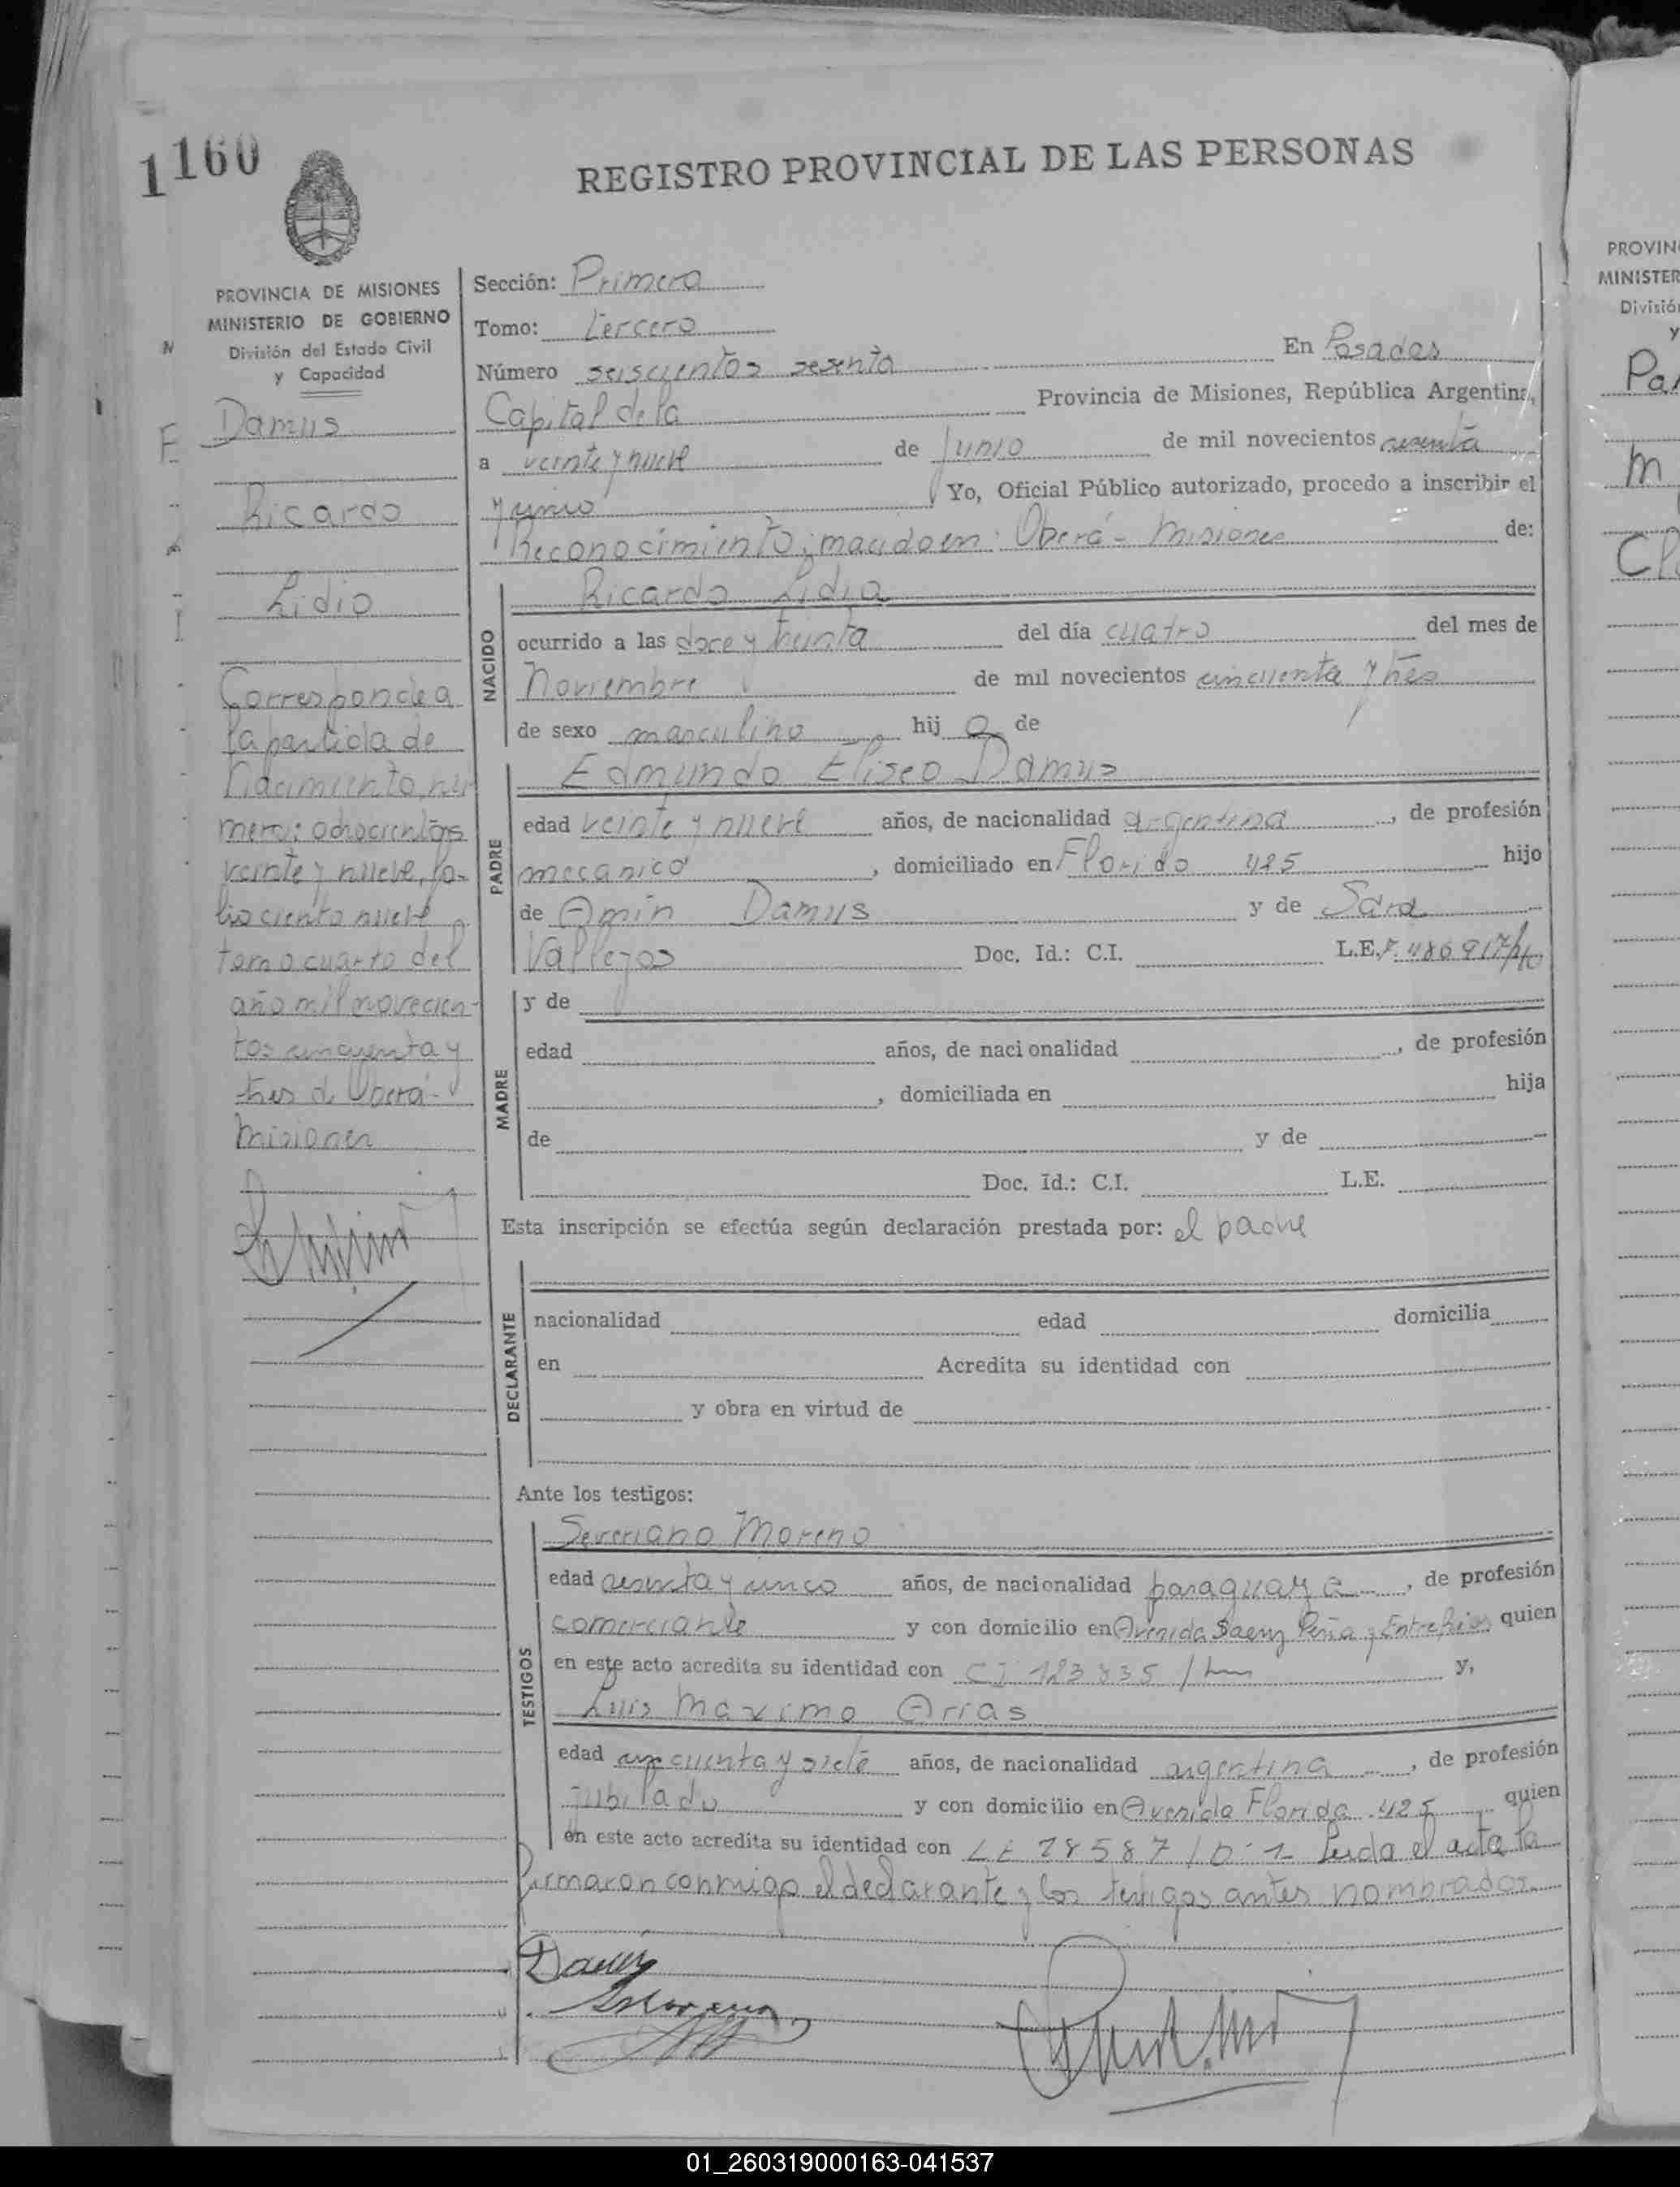 1160
REGISTRO PROVINCIAL DE LAS PERSONAS
PROVINCIA DE MISIONES
MINISTERIO DE GOBIERNO
División del Estado Civil
y Capacidad
Damus
Ricardo
Lidio
Corresponde a
la partida de
Nacimiento, nú
mero: ochocientos
veinte y nueve, fo-
lio ciento nueve
tomo cuarto del
año mil novecien-
tos cincuenta y
tres de Oberá-
Misiones
Sección: Primera
Tomo: tercero
Número seiscientos sesenta En Posadas
Capital de la Provincia de Misiones, República Argentina,
a veinte y nueve de Junio de mil novecientos sesenta
y uno Yo, Oficial Público autorizado, procedo a inscribir el
Reconocimiento; nacido en: Oberá - Misiones de:
NACIDO
Ricardo Lidio
ocurrido a las doce y treinta del día cuatro del mes de
Noviembre de mil novecientos cincuenta y tres
de sexo masculino, hij o de
PADRE
Edmundo Eliseo Damus
edad veinte y nueve años, de nacionalidad argentina, de profesión
mecanico, domiciliado en Florida 425 hijo
de Amin Damus y de Sara
Vallejos Doc. Id.: C.I. L.E. 7.486917
MADRE
y de
edad años, de nacionalidad , de profesión
, domiciliada en hija
de y de
Doc. Id.: C.I. L.E.
Esta inscripción se efectúa según declaración prestada por: el padre
DECLARANTE
nacionalidad edad domicilia
en Acredita su identidad con
y obra en virtud de
Ante los testigos:
TESTIGOS
Severiano Moreno
edad sesenta y cinco años, de nacionalidad paraguaya, de profesión
comerciante y con domicilio en Avenida Saenz Peña y Entre Rios quien
en este acto acredita su identidad con CI 123835 y,
Luis Maximo Arias
edad cincuenta y siete años, de nacionalidad argentina, de profesión
jubilado y con domicilio en Avenida Florida 425 quien
en este acto acredita su identidad con LE 28587 / D-1 Leida el acta la
firmaron conmigo el declarante y los testigos antes nombrados.
Damus
SMoreno
PROVIN
MINISTER
Divisió
y
Pa
M
Cl
01_260319000163-041537